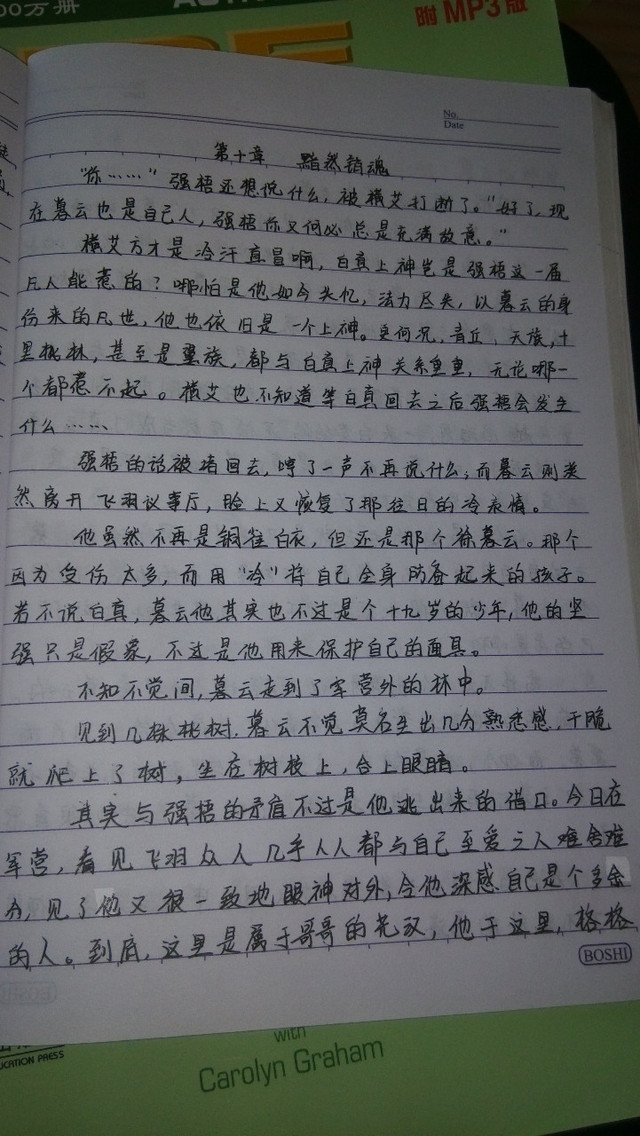 00万册
附MP3版
No.
Date
第十章 黯然销魂
“你……”强梧还想说什么,被横艾打断了。“好了,现
在暮云也是自己人,强梧你又何必总是充满敌意。”
横艾方才是冷汗直冒啊,白真上神岂是强梧这一届
凡人能惹的?哪怕是他如今失忆,法力尽失,以暮云的身
份来的凡世,他也依旧是一个上神。更何况,青丘、天族,十
里桃林,甚至是翼族,都与白真上神关系重重,无论哪一
个都惹不起。横艾也不知道等白真回去之后强梧会发生
什么……
强梧的话被堵回去,哼了一声不再说什么;而暮云则淡
然离开飞羽议事厅,脸上又恢复了那往日的冷衣情。
他虽然不再是铜雀白衣,但还是那个徐暮云。那个
因为受伤太多,而用“冷”将自己全身防备起来的孩子。
若不说白真,暮云他其实也不过是个十九岁的少年,他的坚
强只是假象,不过是他用来保护自己的面具。
不知不觉间,暮云走到了军营外的林中。
见到几株桃树,暮云不觉莫名生出几分熟悉感,干脆
就爬上了树,坐在树枝上,合上眼睛。
其实与强梧的矛盾不过是他逃出来的借口。今日在
军营,看见飞羽众人几乎人人都与自己至爱之人难舍难
分,见了他又很一致地眼神对外,令他深感自己是个多余
的人。到底,这里是属于哥哥的羌汉,他于这里,格格
BOSHI
UCATION PRESS
with
Carolyn Graham